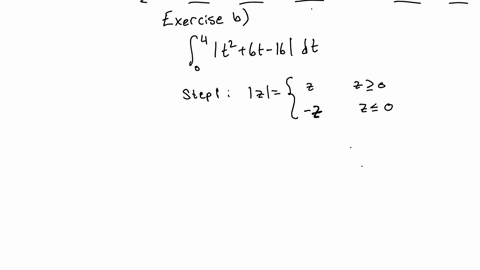 Exercise b)
∫₀⁴ |t²+6t-16| dt
Step 1: |z|= { z z≥0
-z z≤0